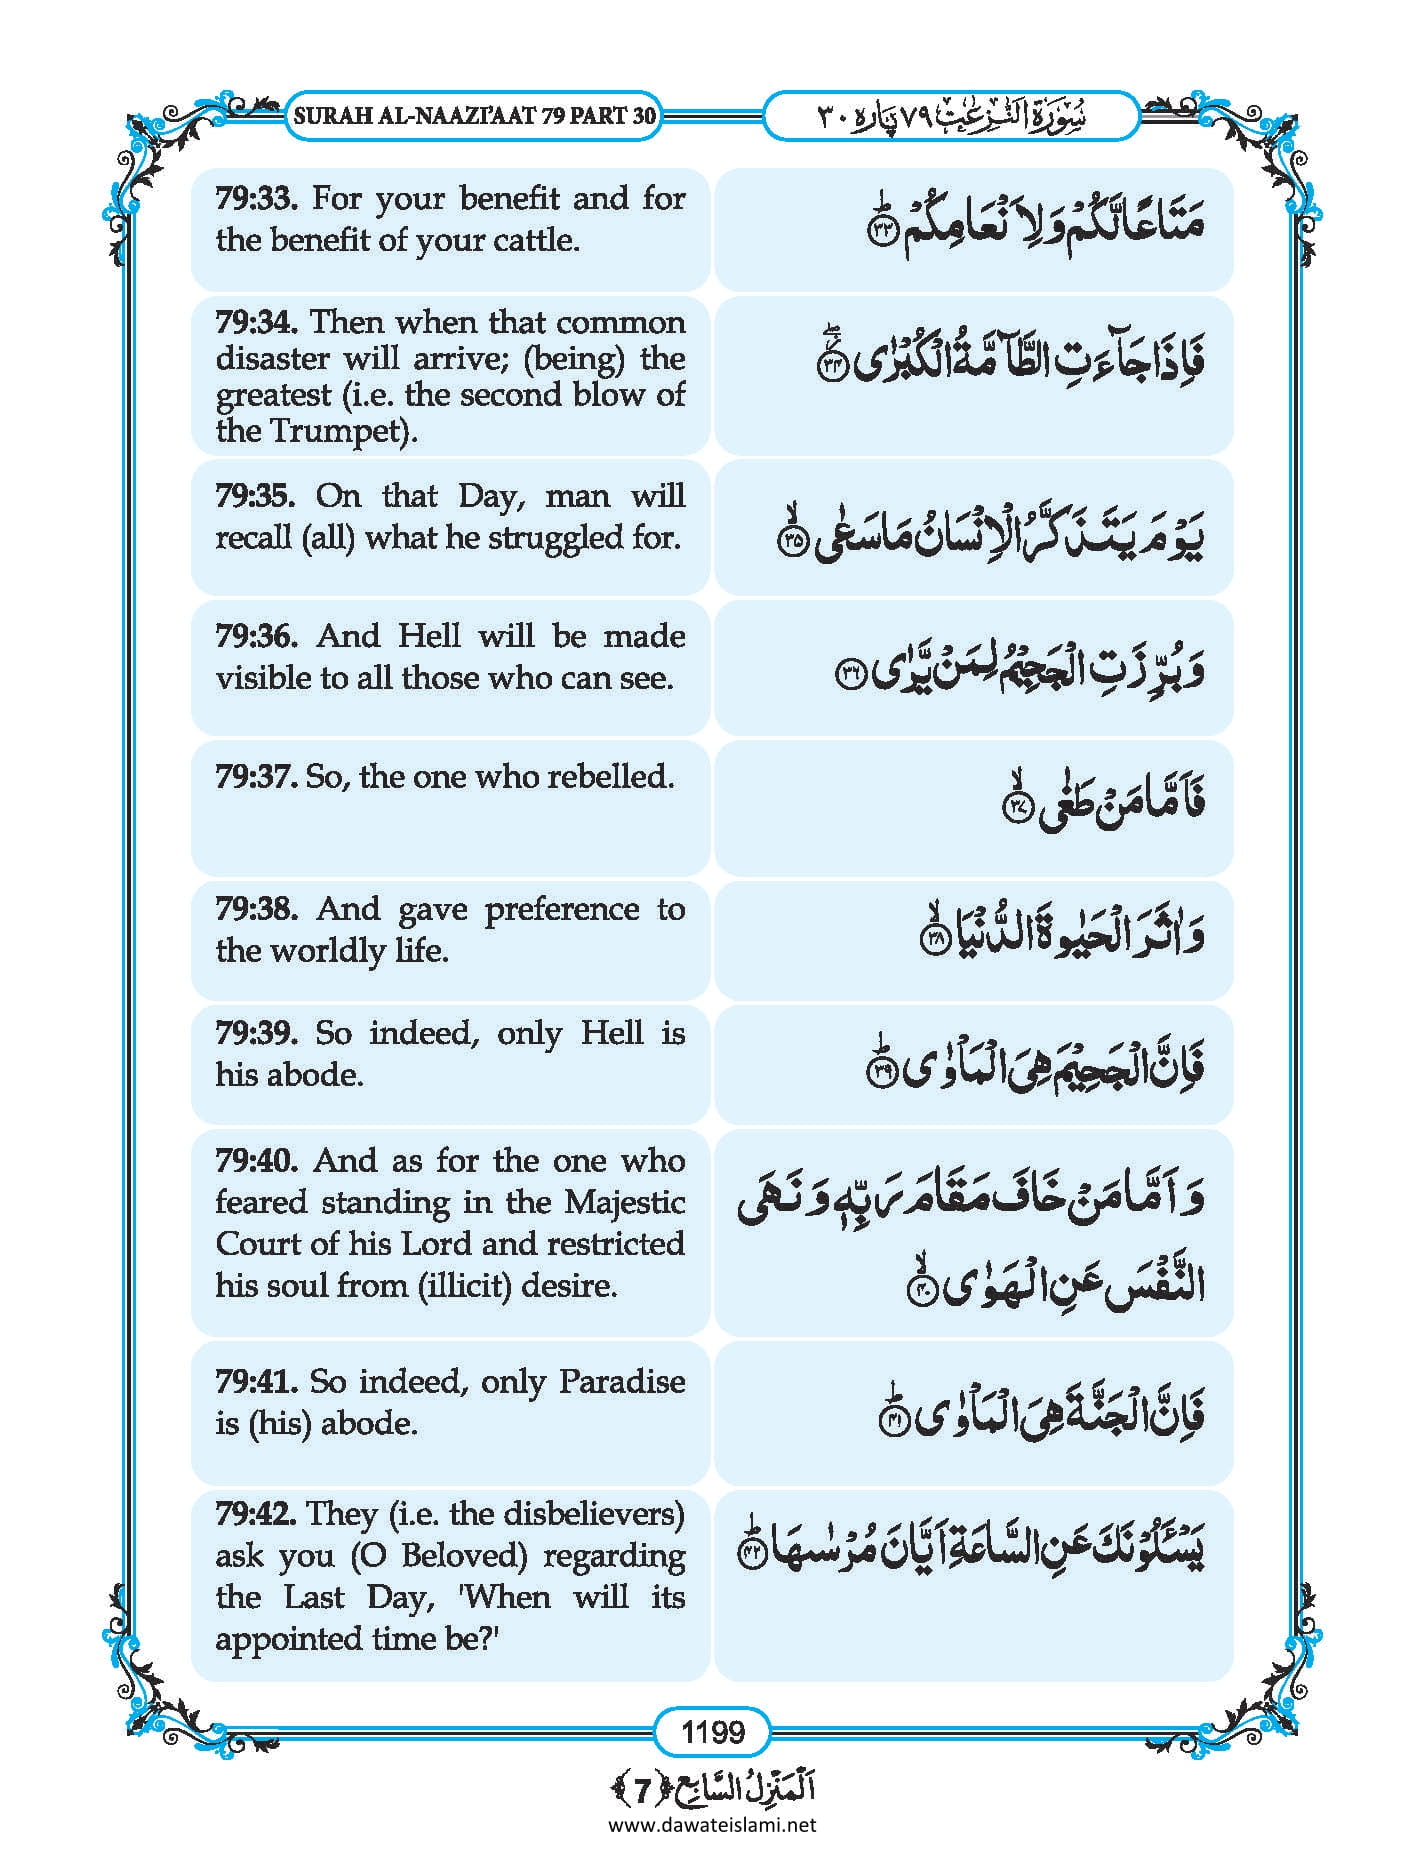 SURAH AL-NAAZI'AAT 79 PART 30
سُوْرَةُ النّٰزِعٰت ٧٩ پاره ٣٠
79:33. For your benefit and for
the benefit of your cattle.
مَتَاعًا لَّكُمْ وَ لِاَنْعَامِكُمْ ؕ﴿۳۳﴾
79:34. Then when that common
disaster will arrive; (being) the
greatest (i.e. the second blow of
the Trumpet).
فَاِذَا جَآءَتِ الطَّآمَّةُ الْكُبْرٰی ﴿۳۴﴾
79:35. On that Day, man will
recall (all) what he struggled for.
یَوْمَ یَتَذَكَّرُ الْاِنْسَانُ مَا سَعٰی ﴿ۙ۳۵﴾
79:36. And Hell will be made
visible to all those who can see.
وَ بُرِّزَتِ الْجَحِیْمُ لِمَنْ یَّرٰی ﴿۳۶﴾
79:37. So, the one who rebelled.
فَاَمَّا مَنْ طَغٰی ﴿ۙ۳۷﴾
79:38. And gave preference to
the worldly life.
وَ اٰثَرَ الْحَیٰوةَ الدُّنْیَا ﴿ۙ۳۸﴾
79:39. So indeed, only Hell is
his abode.
فَاِنَّ الْجَحِیْمَ هِیَ الْمَاْوٰی ﴿ؕ۳۹﴾
79:40. And as for the one who
feared standing in the Majestic
Court of his Lord and restricted
his soul from (illicit) desire.
وَ اَمَّا مَنْ خَافَ مَقَامَ رَبِّهٖ وَ نَهَی
النَّفْسَ عَنِ الْهَوٰی ﴿ۙ۴۰﴾
79:41. So indeed, only Paradise
is (his) abode.
فَاِنَّ الْجَنَّةَ هِیَ الْمَاْوٰی ﴿ؕ۴۱﴾
79:42. They (i.e. the disbelievers)
ask you (O Beloved) regarding
the Last Day, 'When will its
appointed time be?'
یَسْـَٔلُوْنَكَ عَنِ السَّاعَةِ اَیَّانَ مُرْسٰىهَا ﴿ؕ۴۲﴾
1199
اَلْمَنْزِلُ السَّابِع ﴿7﴾
www.dawateislami.net